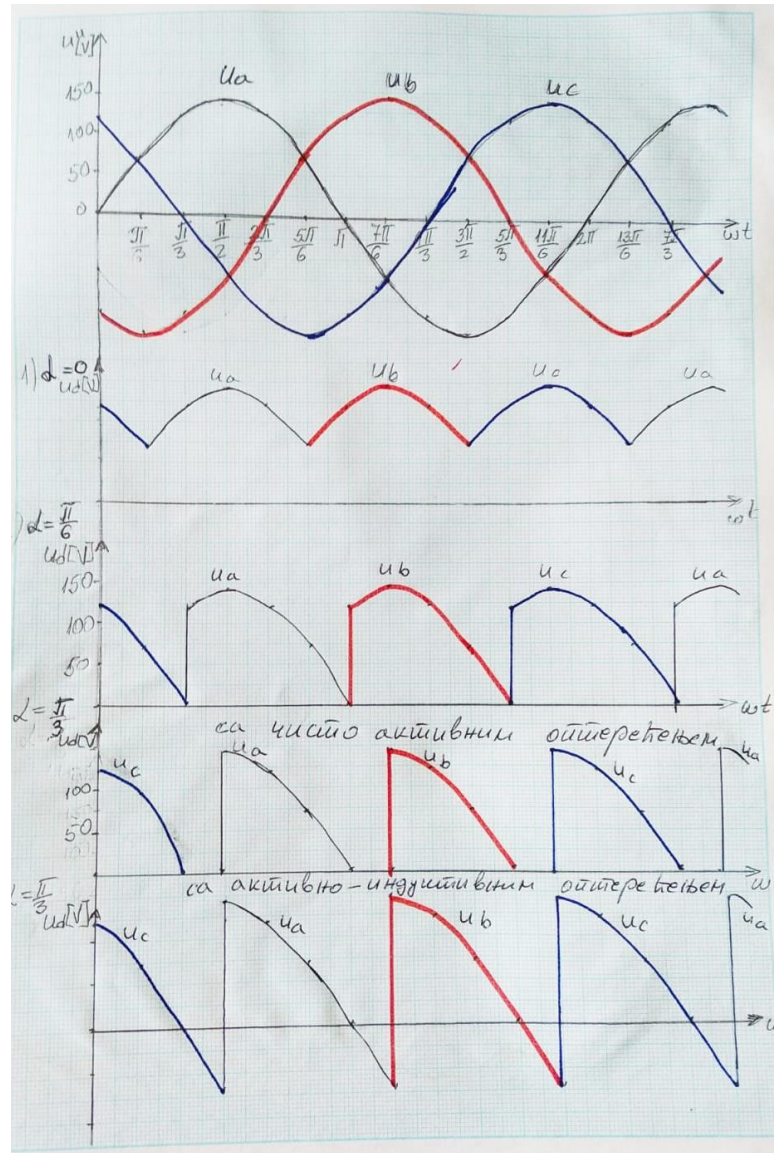 u[V]
ua ub uc
150
100
50
0
π/6 π/3 π/2 2π/3 5π/6 π 7π/6 π/3 3π/2 5π/3 11π/6 2π 13π/6 7π/3 ωt
1) α=0
ud[V]
ua ub uc ua
ωt
α=π/6
ud[V]
150
100
50
ua ub uc ua
ωt
α=π/3
са чисто активним оптерећењем
ud[V]
100
50
uc ua ub uc ua
ω
α=π/3
са активно-индуктивним оптерећењем
ud[V]
uc ua ub uc ua